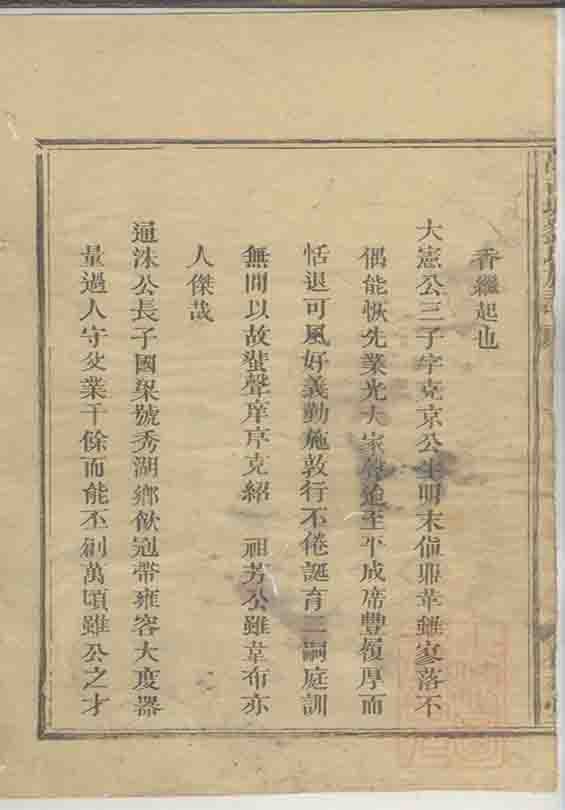 香繼起也
大憲公三子字克京公生明末值鼎革雖寥落不
偶能恢先業光大家聲迨至平成席豐履厚而
恬退可風好義勤施敦行不倦誕育三嗣庭訓
無間以故蜚聲庠序克紹 祖芳公雖韋布亦
人傑哉
通洙公長子國梁號秀湖鄉飲冠帶雍容大度器
量過人守父業千餘而能丕創萬頃雖公之才